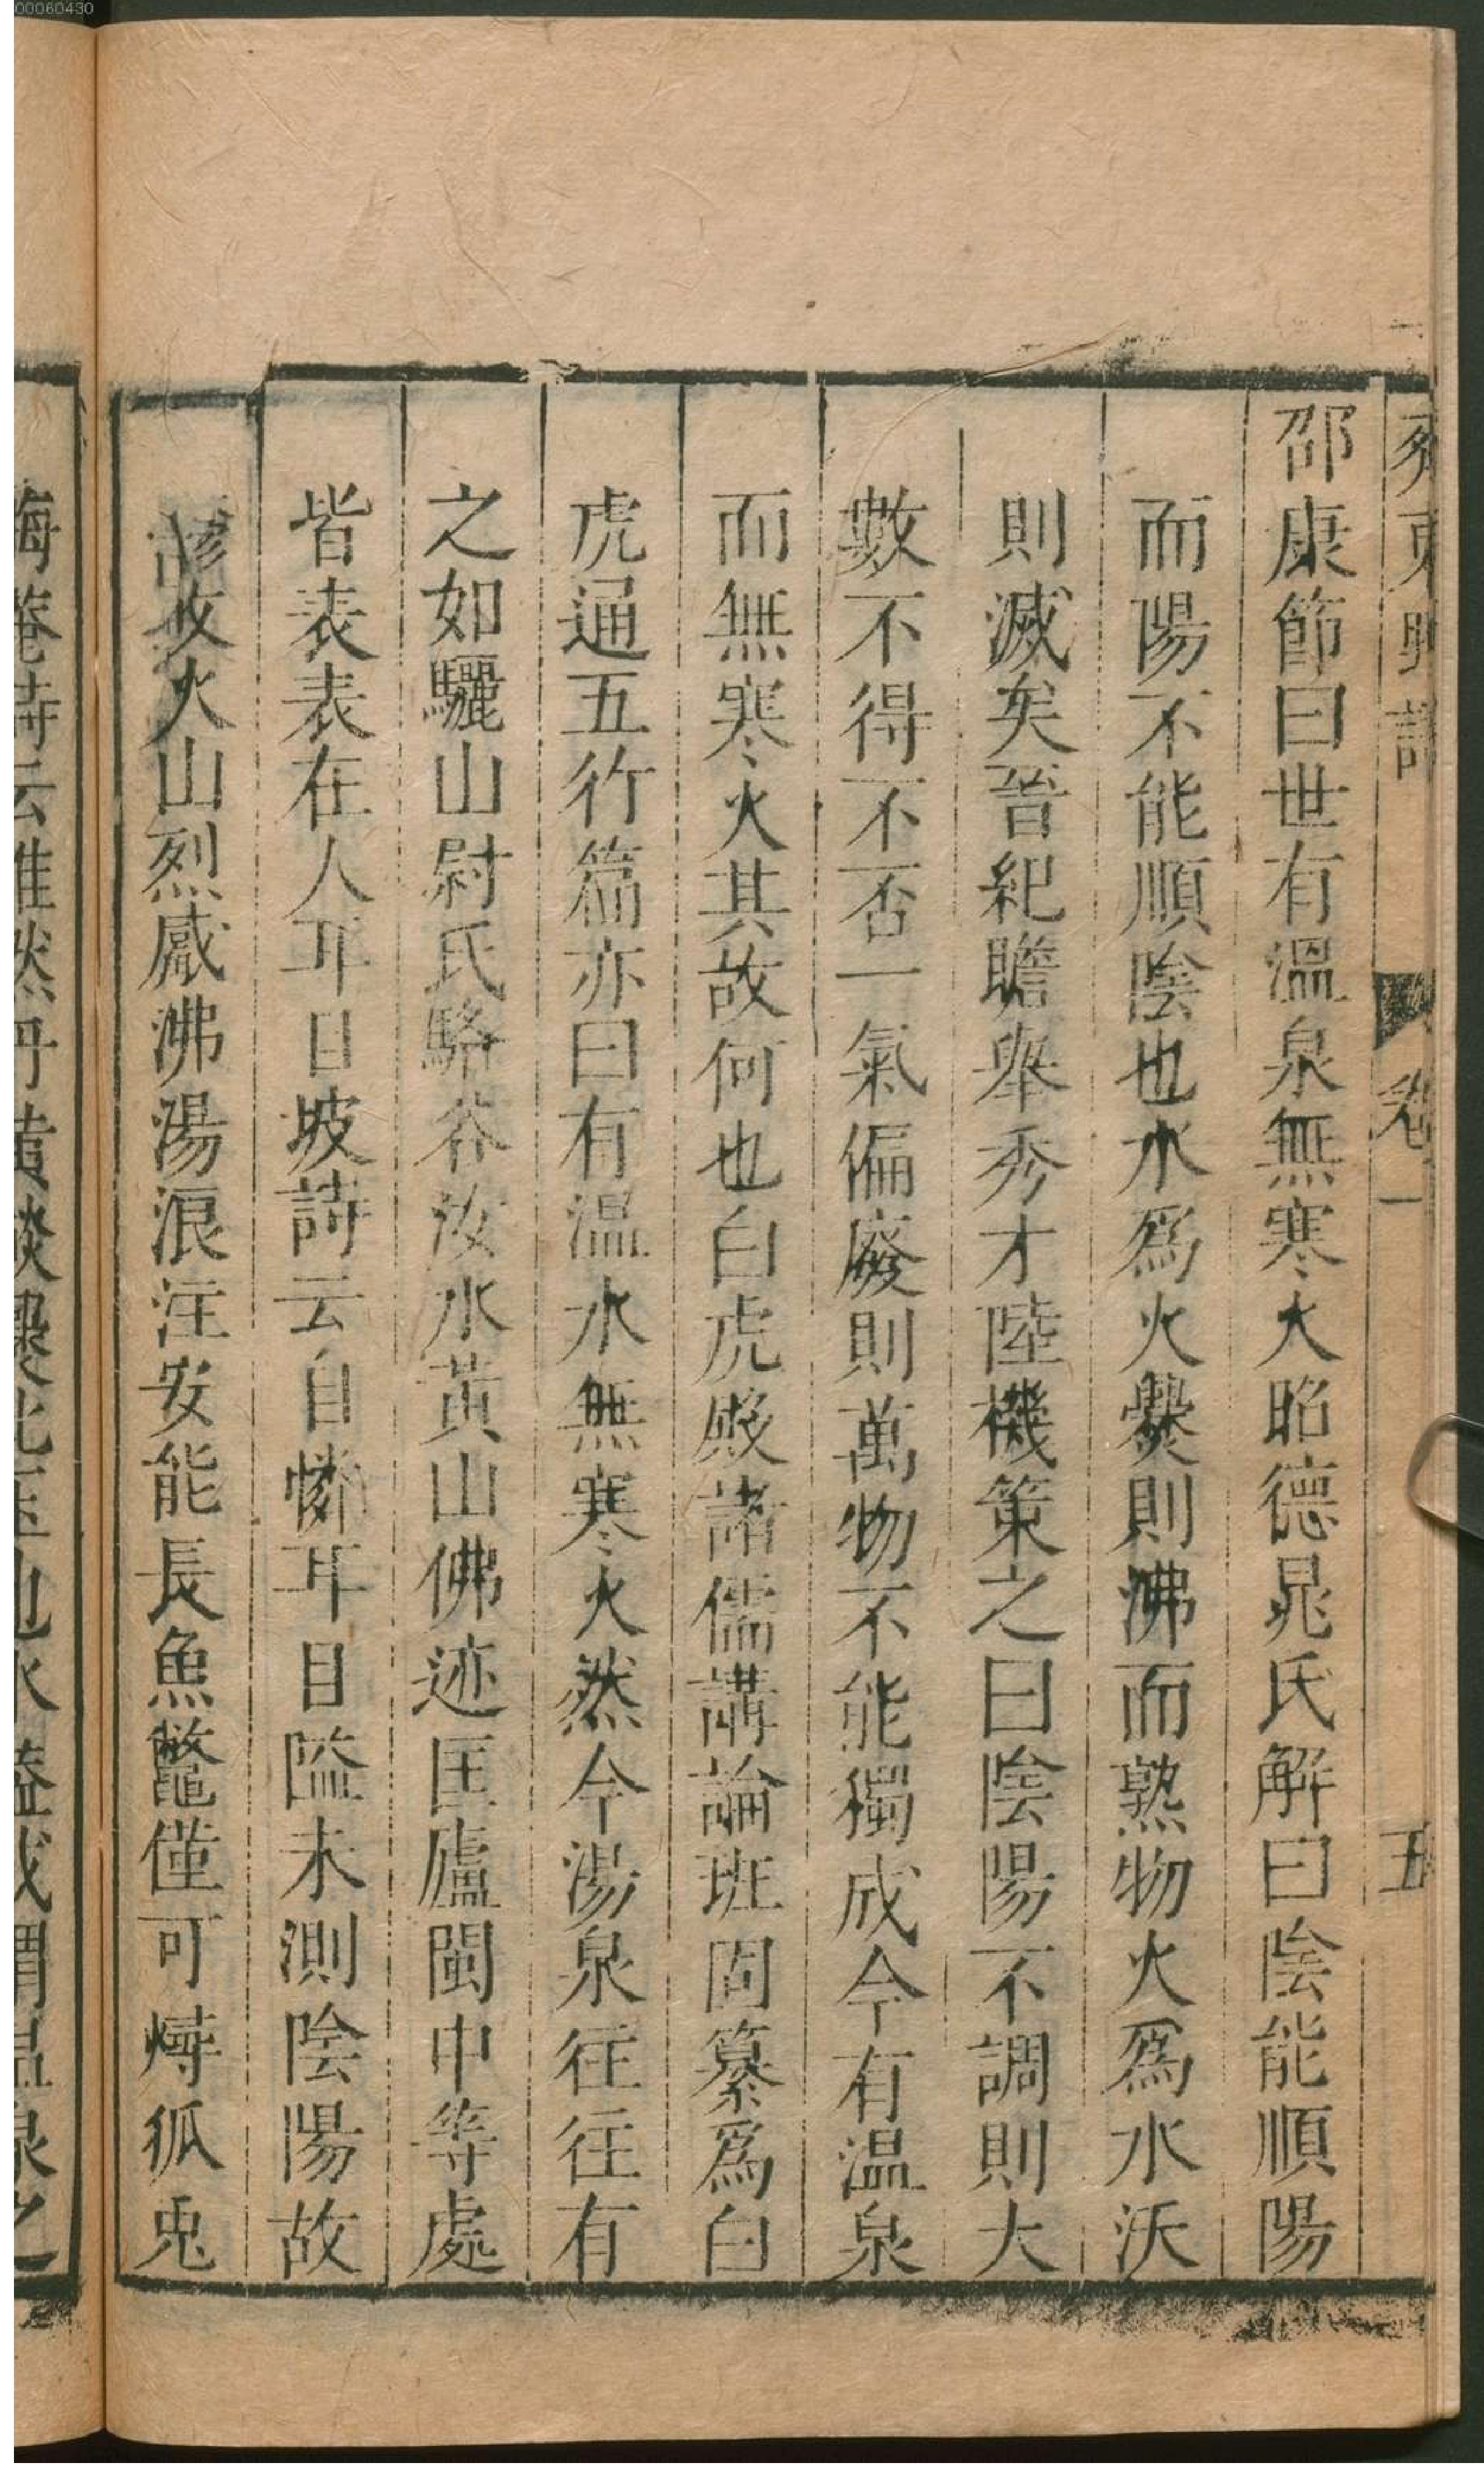 00060430
齊東野語 卷一 五
邵康節曰世有溫泉無寒火昭德晁氏解曰陰能順陽
而陽不能順陰也水爲火爨則沸而熟物火爲水沃
則滅矣晉紀瞻舉秀才陸機策之曰陰陽不調則大
數不得不否一氣偏廢則萬物不能獨成今有溫泉
而無寒火其故何也白虎殿諸儒講論班固纂爲白
虎通五行篇亦曰有溫水無寒火然今湯泉往往有
之如驪山尉氏駱谷汝水黃山佛迹匡廬閩中等處
皆表表在人耳目坡詩云自憐耳目隘未測陰陽故
攻火山烈觱沸湯泉注安能長魚鼈僅可燖狐兎
晦菴詩云誰然丹黃燄爨此玉池水
溫泉之